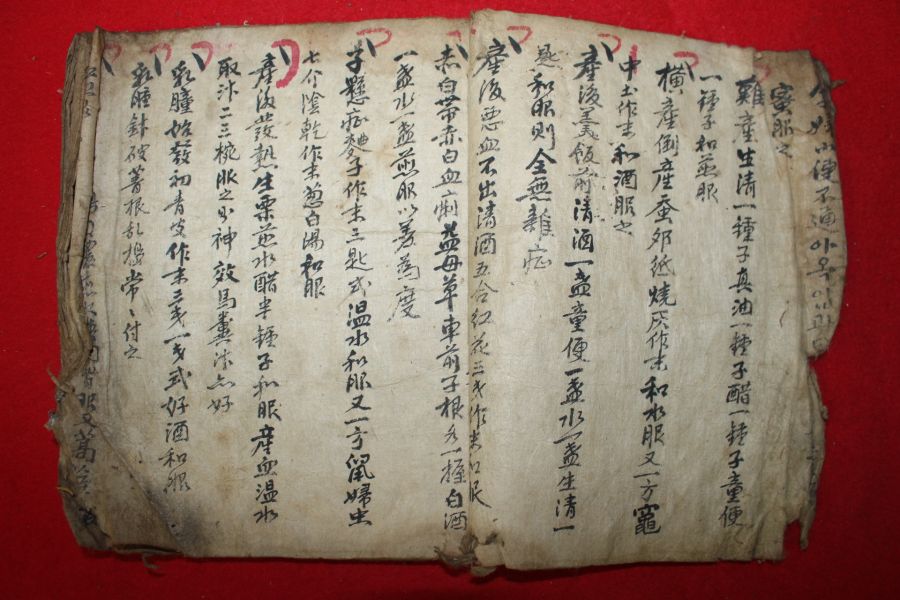 孕婦小便不通아옥
蜜服之
難産生清一鍾子真油一鍾子醋一鍾子童便
一鍾子和並服
橫産倒産蚕卵紙燒灰作末和水服又一方竈
中土作末和酒服之
産後羹飯前清酒一盏童便一盏水一盏生清一
匙和服則全無雜症
産後悪血不出清酒五合紅花三戔作末和服
赤白帶赤白血痢益母草車前子根各一握白酒
一盏水一盏煎服以差為度
子懸症麯子作末三匙式温水和服又一方鼠婦虫
七介陰乾作末葱白湯和服
産後發熱生栗並水醋半鍾子和服産血温水
取汁二三椀服之如神效馬糞汁亦好
乳腫始發初青皮作末三戔一戔式好酒和服
乳腫針破菁根乱搗常〻付之